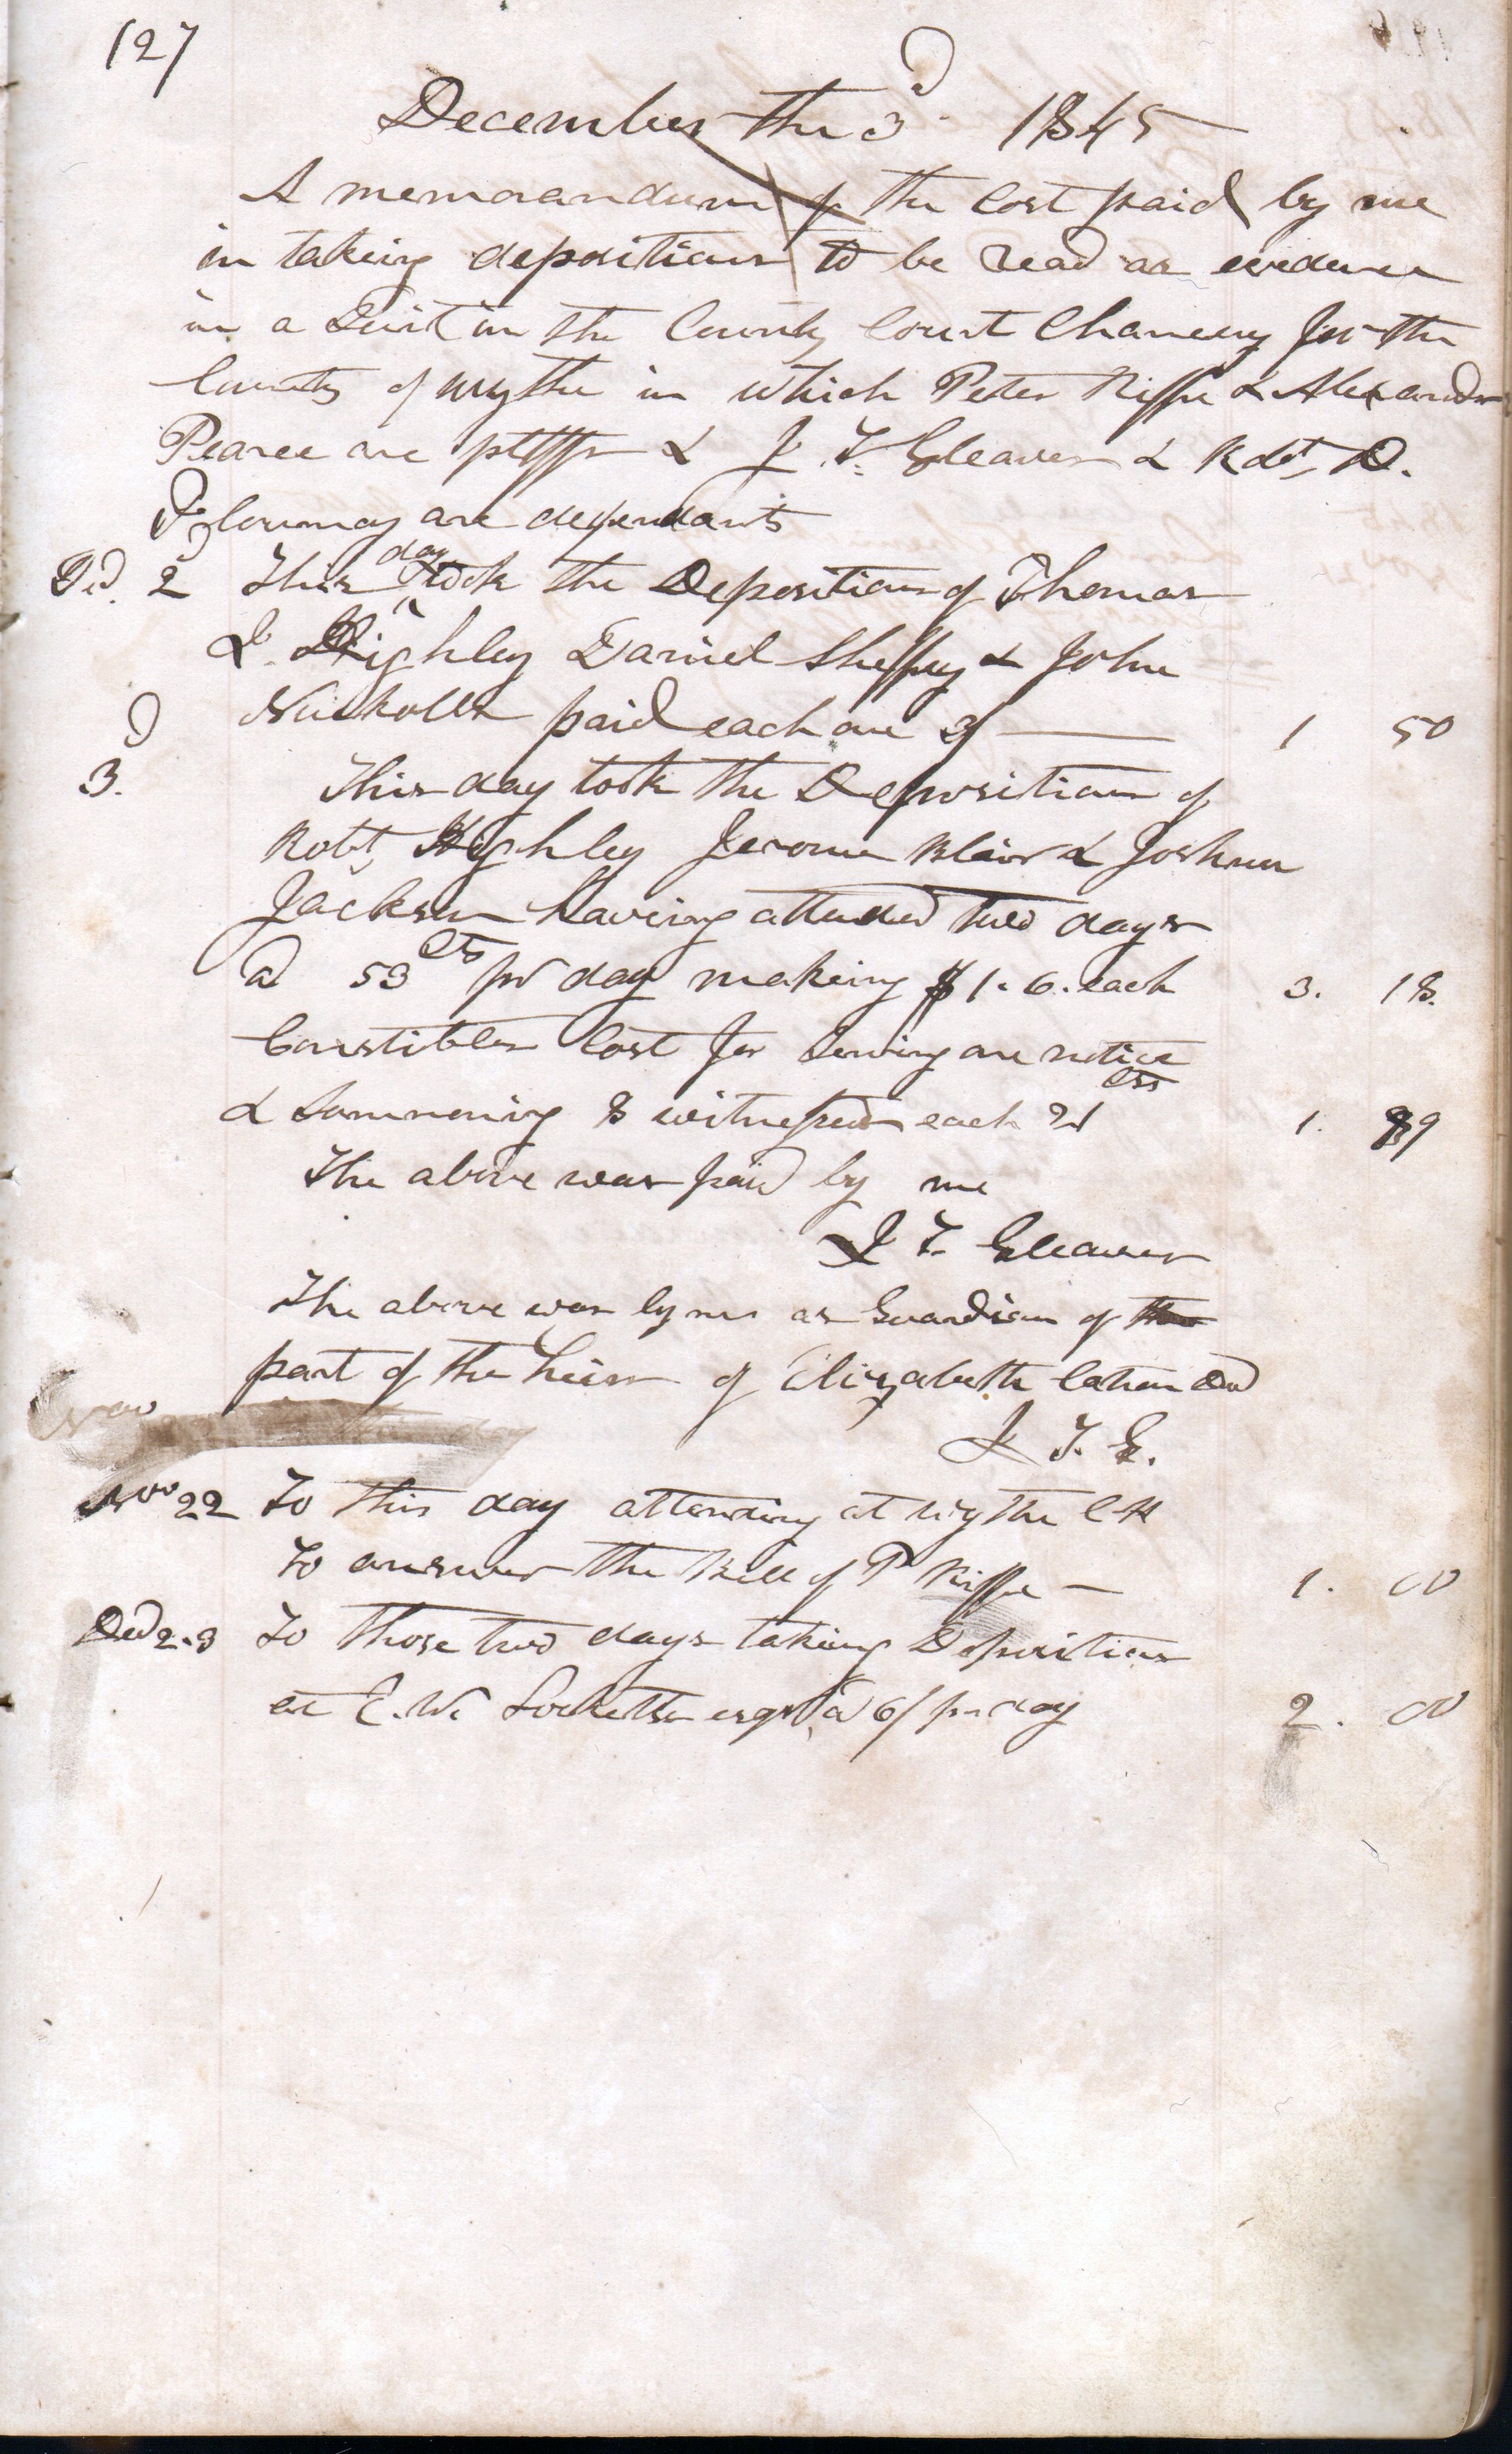 127
December the 3d 1845
A memorandum of the Cost paid by me
in taking depositions to be read as evidence
in a Suit in the County Court Chancery for the
County of Wythe in which Peter Riffe & Alexander
Pearce are pltffs & J. T. Gleaves & Robt, D.
Flournoy are defendants
2d This day took the Depositions of Thomas
J. Highley Daniel Sheffey & John
Nuckolls paid each one 3/ 1 50
3d.
This day took the Depositions of
Robt, Highley Jerome Blair & Joshua
Jackson having attended two days
a 53 cts pr day making $1.6. each 3. 18.
Constibles Cost for Serving one notice
& Summoning 8 witnesses each 21 cts 1. 89
The above was paid by me
J T. Gleaves
The above was by me as Guardian of
part of the heirs of Elizabeth Catron Decd
J. T. G.
Nov 22 To this day attending at Wythe C H
To answer the Bill of P Riffe 1. 00
Decd 2.3 To those two days taking Depositions
at E. W. esqr a 6/ pr day 2. 00